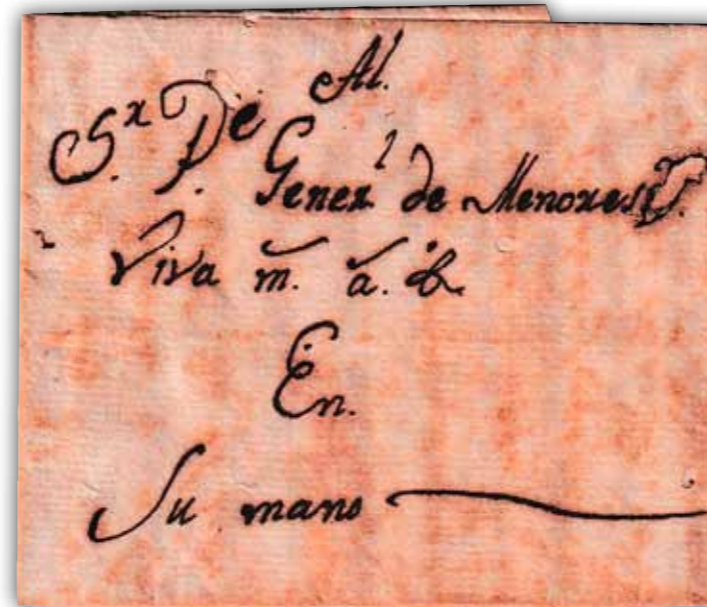 Al.
S.r D.e Gener.l de Menores
Viva m. a.
En.
Su mano